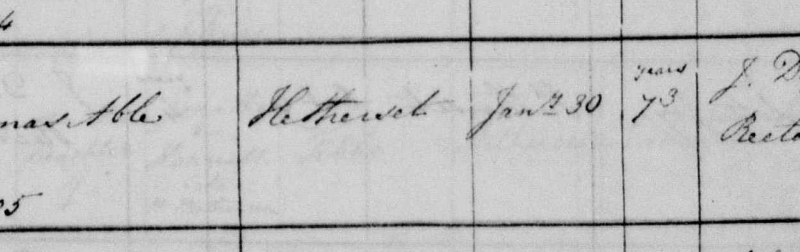 4
mas Able Hetherset Jany. 30 years 73 J. D
Recto
05